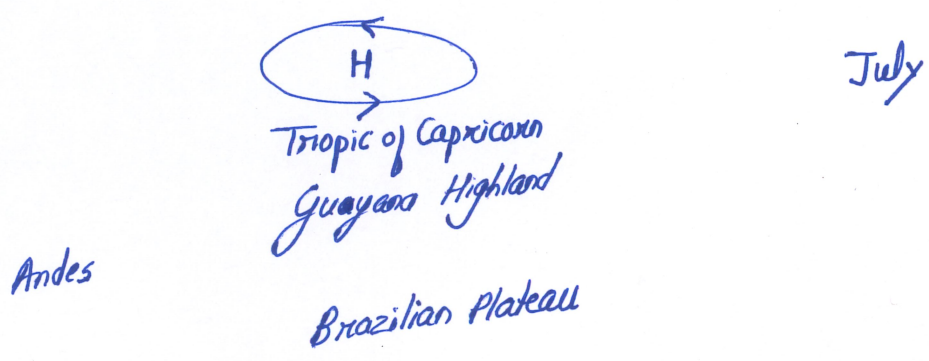 H
July
Tropic of Capricorn
Guayana Highland
Andes
Brazilian Plateau